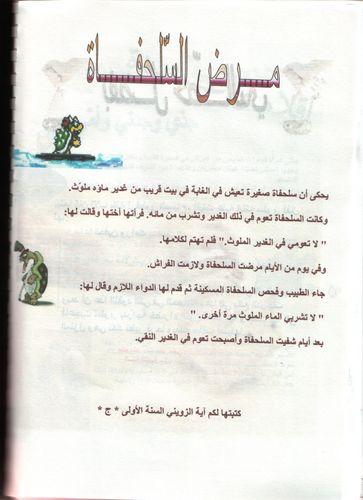 مرض السّلحفاة
يحكى أن سلحفاة صغيرة تعيش في الغابة في بيت قريب من غدير ماؤه ملوّث.
وكانت السلحفاة تعوم في ذلك الغدير وتشرب من مائه. فرأتها أختها وقالت لها:
" لا تعومي في الغدير الملوث." فلم تهتم لكلامها.
وفي يوم من الأيام مرضت السلحفاة ولازمت الفراش.
جاء الطبيب وفحص السلحفاة المسكينة ثم قدم لها الدواء اللازم وقال لها:
" لا تشربي الماء الملوث مرة أخرى. "
بعد أيام شفيت السلحفاة وأصبحت تعوم في الغدير النقي.
كتبتها لكم آية الزويني السنة الأولى * ج *